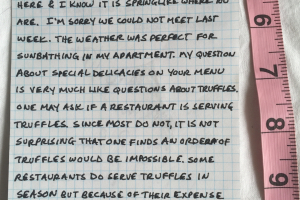 HERE & I KNOW IT IS SPRINGLIKE WHERE YOU
ARE. I'M SORRY WE COULD NOT MEET LAST
WEEK. THE WEATHER WAS PERFECT FOR
SUNBATHING IN MY APARTMENT. MY QUESTION
ABOUT SPECIAL DELICACIES ON YOUR MENU
IS VERY MUCH LIKE QUESTIONS ABOUT TRUFFLES.
ONE MAY ASK IF A RESTAURANT IS SERVING
TRUFFLES. SINCE MOST DO NOT, IT IS NOT
SURPRISING THAT ONE FINDS AN ORDER OF
TRUFFLES WOULD BE IMPOSSIBLE. SOME
RESTAURANTS DO SERVE TRUFFLES IN
SEASON BUT BECAUSE OF THEIR EXPENSE,
6
7
8
9